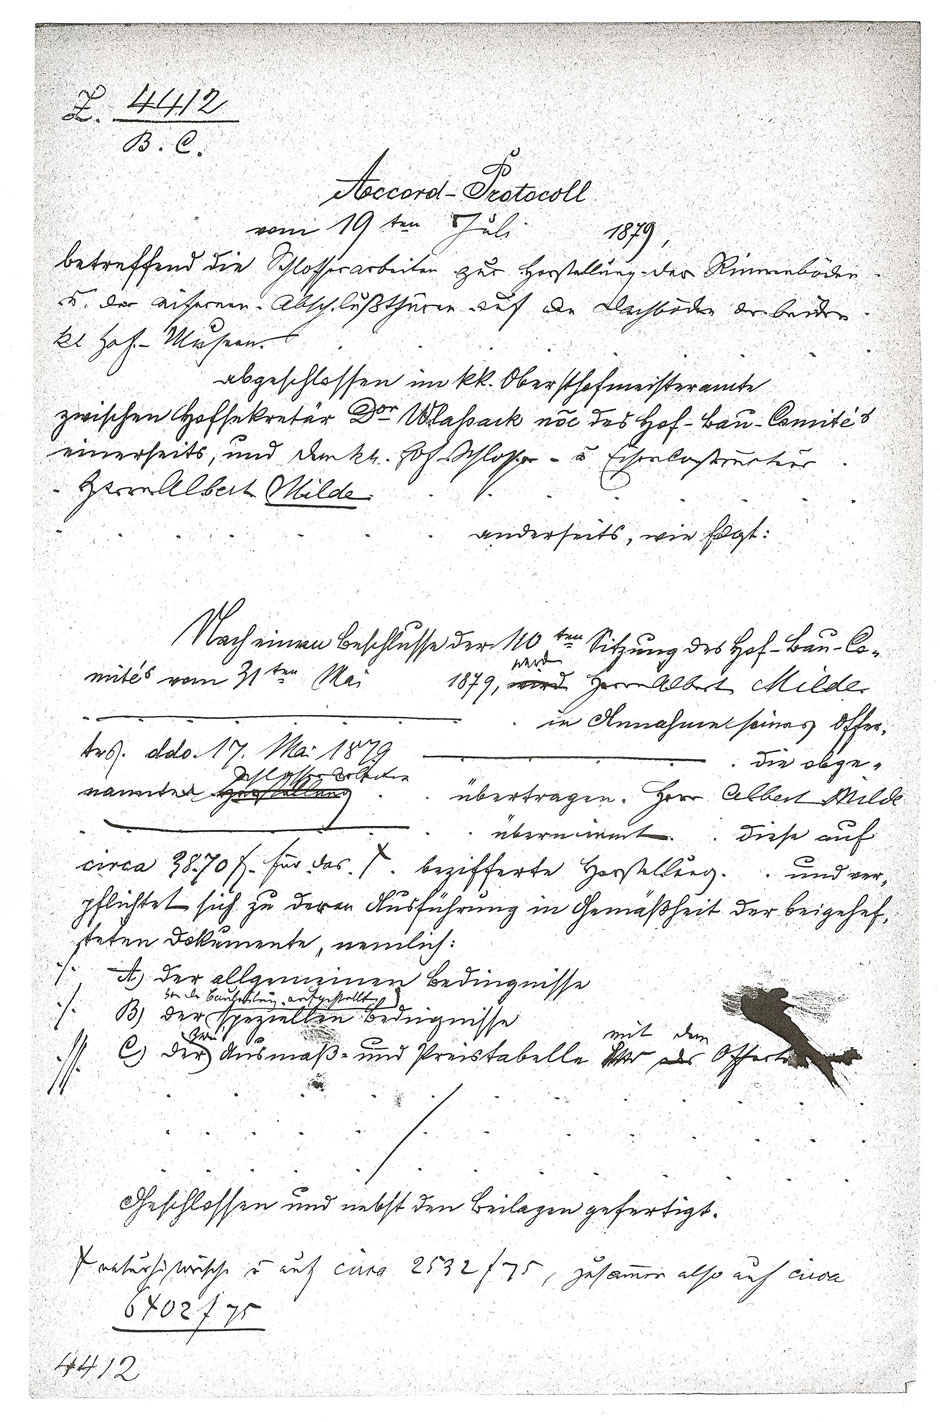 Z. 4412
B. C.
Accord-Protocoll
vom 19ten Juli 1879,
betreffend die Schlosserarbeiten zur Herstellung der Rinnenböden
u. der eisernen Abschlußthüren auf den Dachböden der beiden
kk Hof-Museen.
abgeschlossen im kk. Obersthofmeisteramte
zwischen Hofsekretär Dor Wlassack nōe des Hof-Bau-Comité's
einerseits, und dem kk. Hof-Schlosser- u Eisenconstructeur
Herrn Albert Milde
anderseits, wie folgt:
Nach einem Beschlusse der 110ten Sitzung des Hof-Bau-Co-
mités vom 31ten Mai 1879, wird wird Herrn Albert Milde
in Annahme seines Offer-
tes ddo. 17. Mai 1879 die obge-
nannten Schlosserarbeiten Herstellung übertragen. Herr Albert Milde
übernimmt diese auf
circa 3870 f. für das X bezifferte Herstellung und ver-
pflichtet sich zu deren Ausführung in Gemäßheit der beigehef-
teten Dokumente, nemlich:
./. A) der allgemeinen Bedingnisse
./. B) der von der Bauleitung aufgestellten speziellen Bedingnisse
.///. C) der Ausmaß- und Preistabelle mit dem als Offert
Geschlossen und nebst den Beilagen gefertigt.
X naturhistorische u auf circa 2532 f 75, zusammen also auf circa
6402 f 75
4412